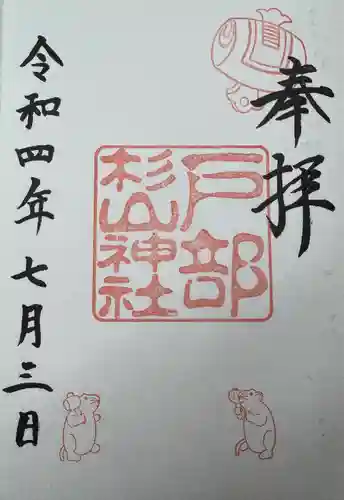 奉拝
戸部
杉山神社
令和四年七月三日